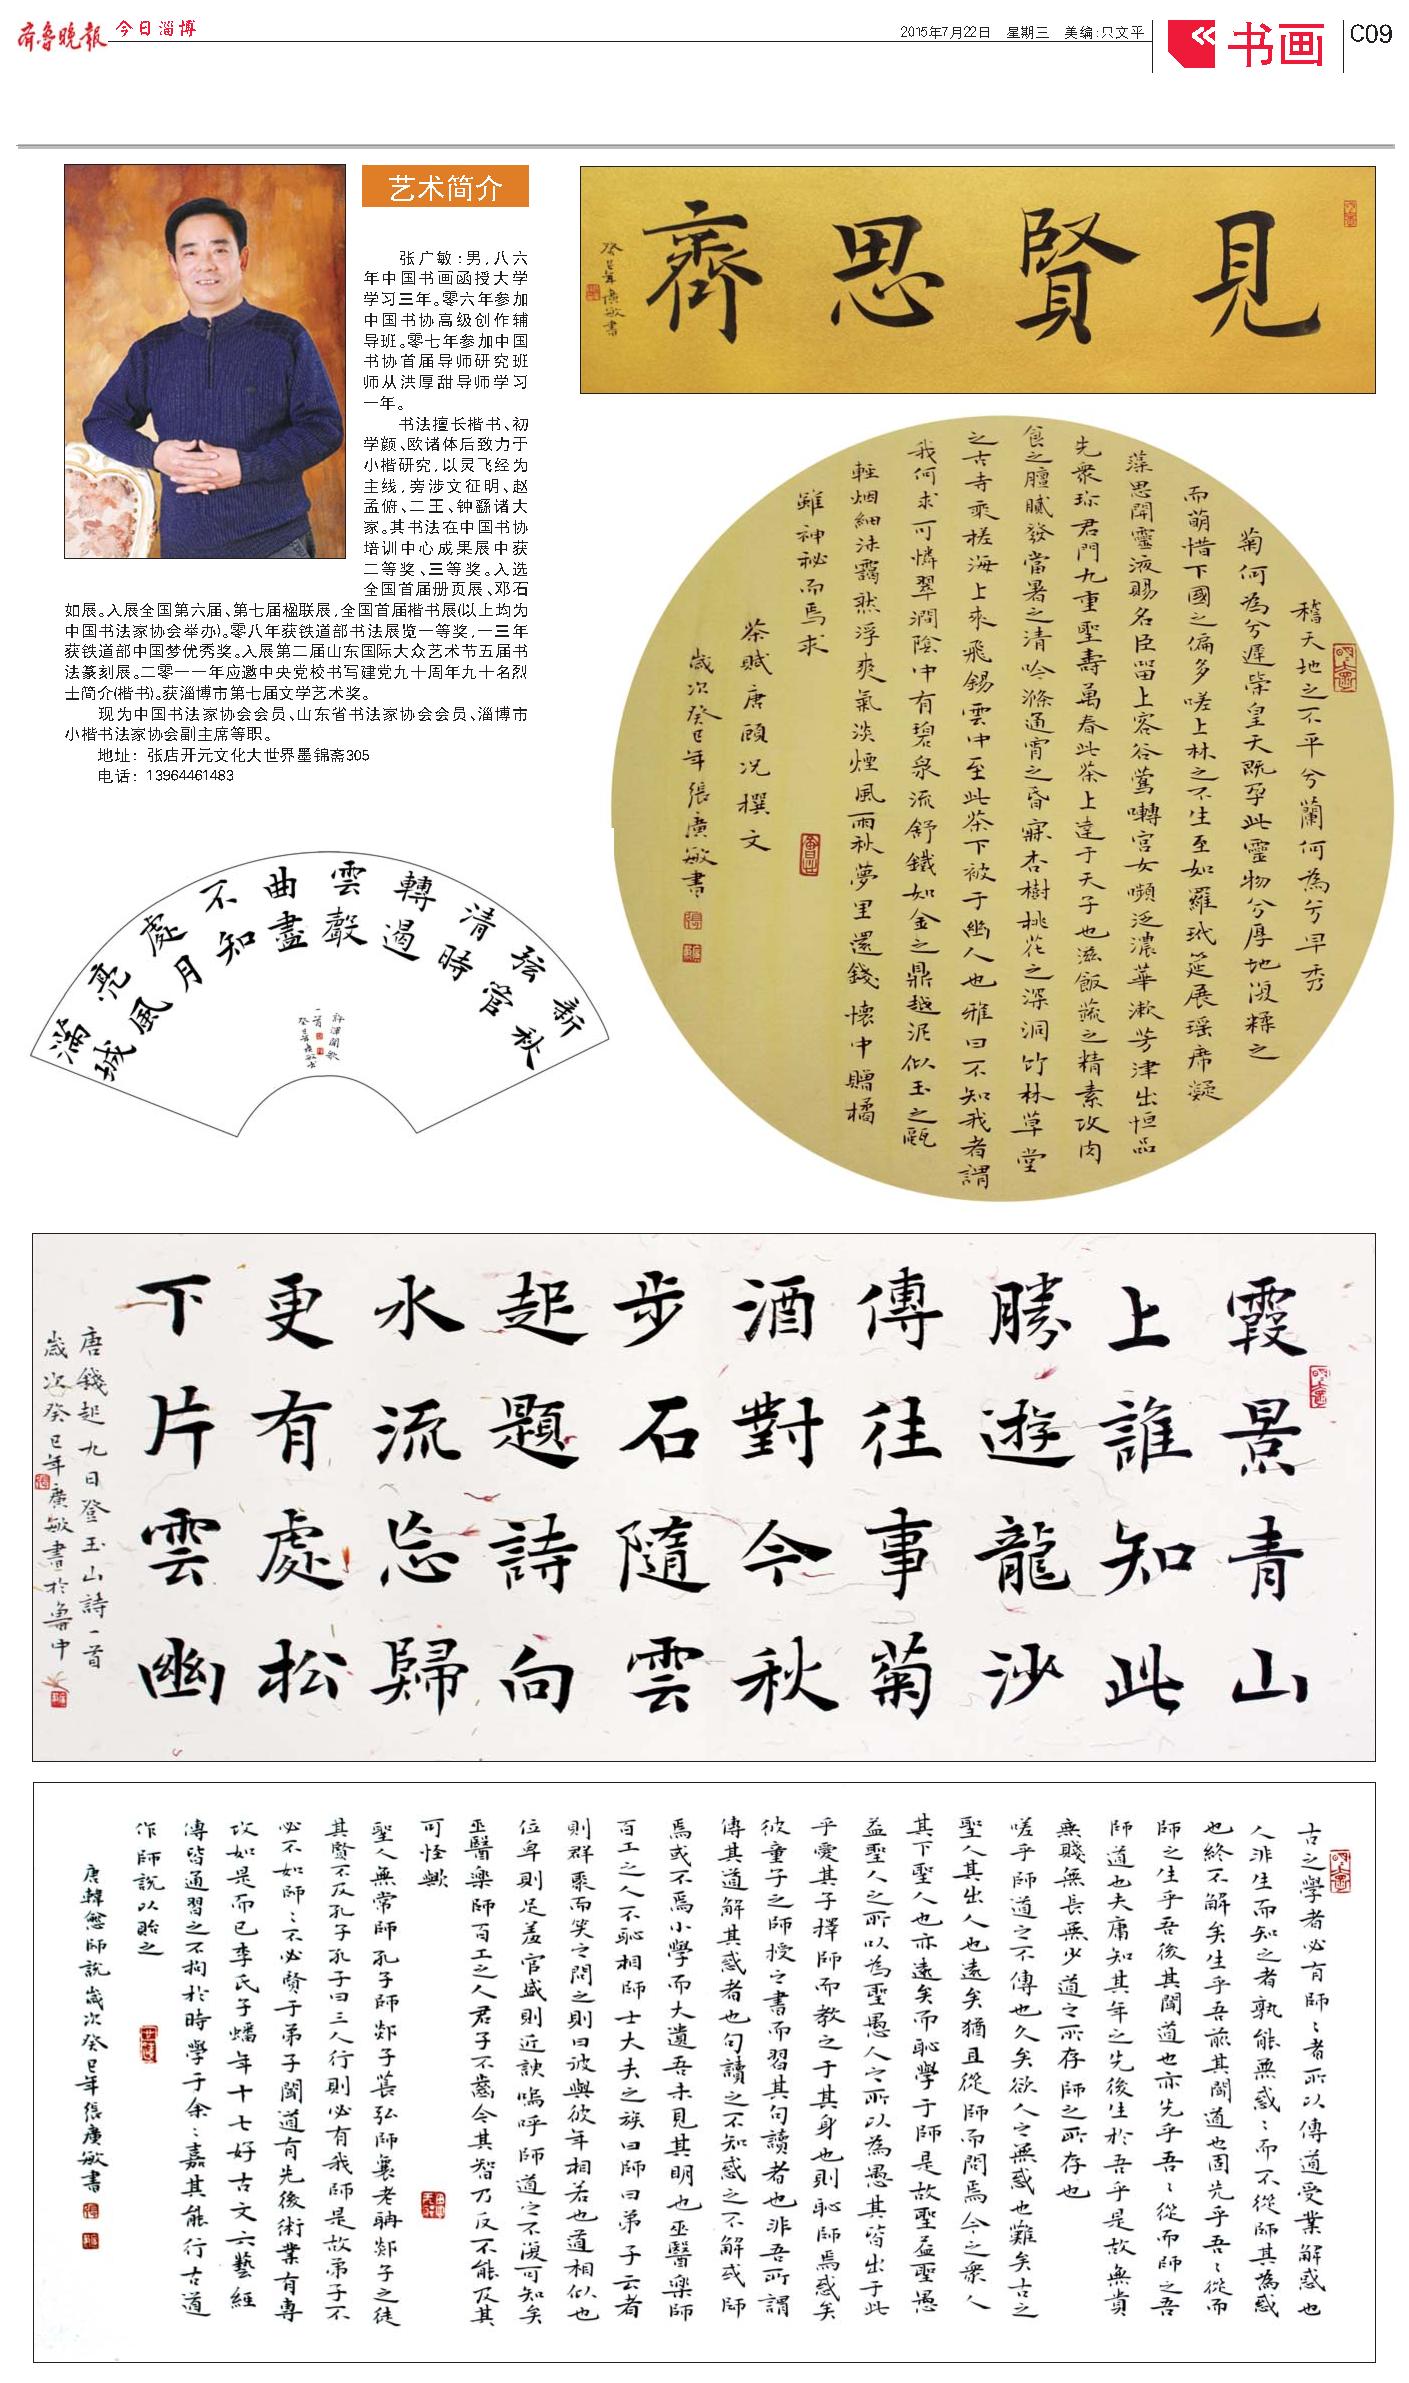 齐鲁晚报 今日淄博
2015年7月22日 星期三 美编:只文平
书画
C09
艺术简介
张广敏:男,八六
年中国书画函授大学
学习三年。零六年参加
中国书协高级创作辅
导班。零七年参加中国
书协首届导师研究班
师从洪厚甜导师学习
一年。
书法擅长楷书、初
学颜、欧诸体后致力于
小楷研究,以灵飞经为
主线,旁涉文征明、赵
孟俯、二王、钟繇诸大
家。其书法在中国书协
培训中心成果展中获
二等奖、三等奖。入选
全国首届册页展、邓石
如展。入展全国第六届、第七届楹联展,全国首届楷书展(以上均为
中国书法家协会举办)。零八年获铁道部书法展览一等奖,一三年
获铁道部中国梦优秀奖。入展第二届山东国际大众艺术节五届书
法篆刻展。二零一一年应邀中央党校书写建党九十周年九十名烈
士简介(楷书)。获淄博市第七届文学艺术奖。
现为中国书法家协会会员、山东省书法家协会会员、淄博市
小楷书法家协会副主席等职。
地址: 张店开元文化大世界墨锦斋305
电话: 13964461483
見賢思齊
癸巳年廣敏書
稽天地之不平兮蘭何為兮早秀
菊何為兮遲榮皇天既孕此靈物兮厚地復糅之
而萌惜下國之偏多嗟上林之不生至如羅玳筵展瑤席凝
藻思開靈液賜名臣留上客谷鶯囀宮女嚬泛濃華漱芳津出恒品
先眾珍君門九重聖壽萬春此茶上達于天子也滋飯蔬之精素攻肉
食之膻膩發當暑之清吟滌通宵之昏寐杏樹桃花之深洞竹林草堂
之古寺乘槎海上來飛錫雲中至此茶下被于幽人也雅曰不知我者謂
我何求可憐翠澗陰中有碧泉流舒鐵如金之鼎越泥似玉之甌
輕烟細沫靄然浮爽氣淡煙風雨秋夢里還錢懷中贈橘
雖神秘而焉求
茶賦唐顧况撰文
歲次癸巳年張廣敏書
新秋
弦管
清時
轉過
雲聲
曲盡
不知
處月
亮風
滿城
霞景青山
上誰知此
勝遊龍沙
傳往事菊
酒對今秋
步石隨雲
起題詩向
水流忘歸
更有處松
下片雲幽
唐錢起九日登玉山詩一首
歲次癸巳年廣敏書於魯中
古之學者必有師〻者所以傳道受業解惑也
人非生而知之者孰能無惑〻而不從師其為惑
也終不解矣生乎吾前其聞道也固先乎吾〻從而
師之生乎吾後其聞道也亦先乎吾〻從而師之吾
師道也夫庸知其年之先後生於吾乎是故無貴
無賤無長無少道之所存師之所存也
嗟乎師道之不傳也久矣欲人之無惑也難矣古之
聖人其出人也遠矣猶且從師而問焉今之眾人
其下聖人也亦遠矣而恥學于師是故聖益聖愚
益聖人之所以為聖愚人之所以為愚其皆出于此
乎愛其子擇師而教之于其身也則恥師焉惑矣
彼童子之師授之書而習其句讀者也非吾所謂
傳其道解其惑者也句讀之不知惑之不解或師
焉或不焉小學而大遺吾未見其明也巫醫樂師
百工之人不恥相師士大夫之族曰師曰弟子云者
則群聚而笑之問之則曰彼與彼年相若也道相似也
位卑則足羞官盛則近諛嗚呼師道之不復可知矣
巫醫樂師百工之人君子不齒今其智乃反不能及其
可怪歟
聖人無常師孔子師郯子萇弘師襄老聃郯子之徒
其賢不及孔子孔子曰三人行則必有我師是故弟子不
必不如師〻不必賢于弟子聞道有先後術業有專
攻如是而已李氏子蟠年十七好古文六藝經
傳皆通習之不拘於時學于余〻嘉其能行古道
作師說以貽之
唐韓愈師說歲次癸巳年張廣敏書